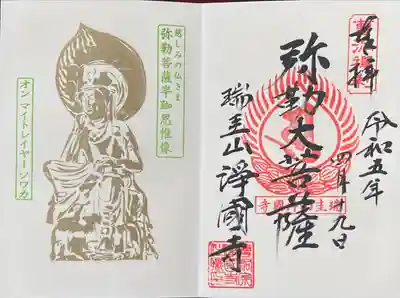 奉拝
令和五年
四月十九日
弥勒大菩薩
瑞圭山 淨國寺
慈しみの仏さま
弥勒菩薩半跏思惟像
オン マイトレイヤーソワカ